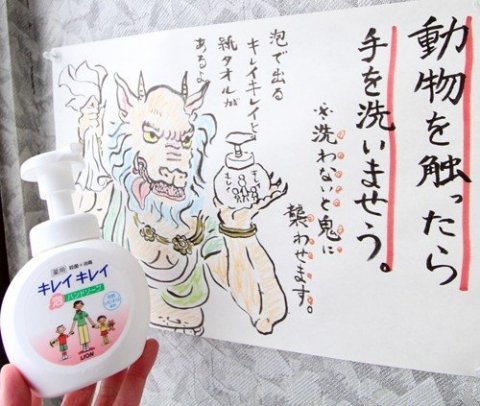 動物を触ったら
手を洗いませう。
※洗わないと鬼に
襲わせます。
泡で出る
キレイキレイと
紙タオルが
あるよ
キレイ
キレイ
薬用
殺菌+消毒
キレイキレイ
泡ハンドソープ
LION